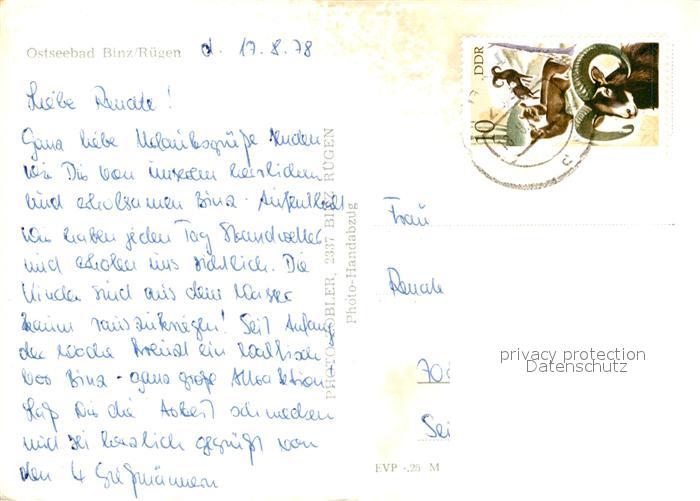 Ostseebad Binz/Rügen d. 17.8.78
Liebe Renate!
Ganz liebe Urlaubsgrüße senden
wir Dir von unserem herrlichen
und erholsamen Binz-Aufenthalt
Wir haben jeden Tag Strandwetter
und erholen uns richtlich. Die
Kinder sind aus dem Wasser
kaum rauszukriegen! Seit Anfang
der Woche kreuzt ein Walfisch
vor Binz - ganz große Attraktion
Laß Dir die Arbeit schmecken
und sei herzlich gegrüßt von
den 4
PHOTO 2337 BINZ RÜGEN
Photo-Handabzug
DDR
10
Frau
Renate
70
Sei
privacy protection
Datenschutz
EVP -,25 M